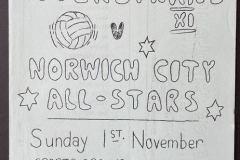 XI
V
NORWICH CITY
ALL-STARS
Sunday 1st. November